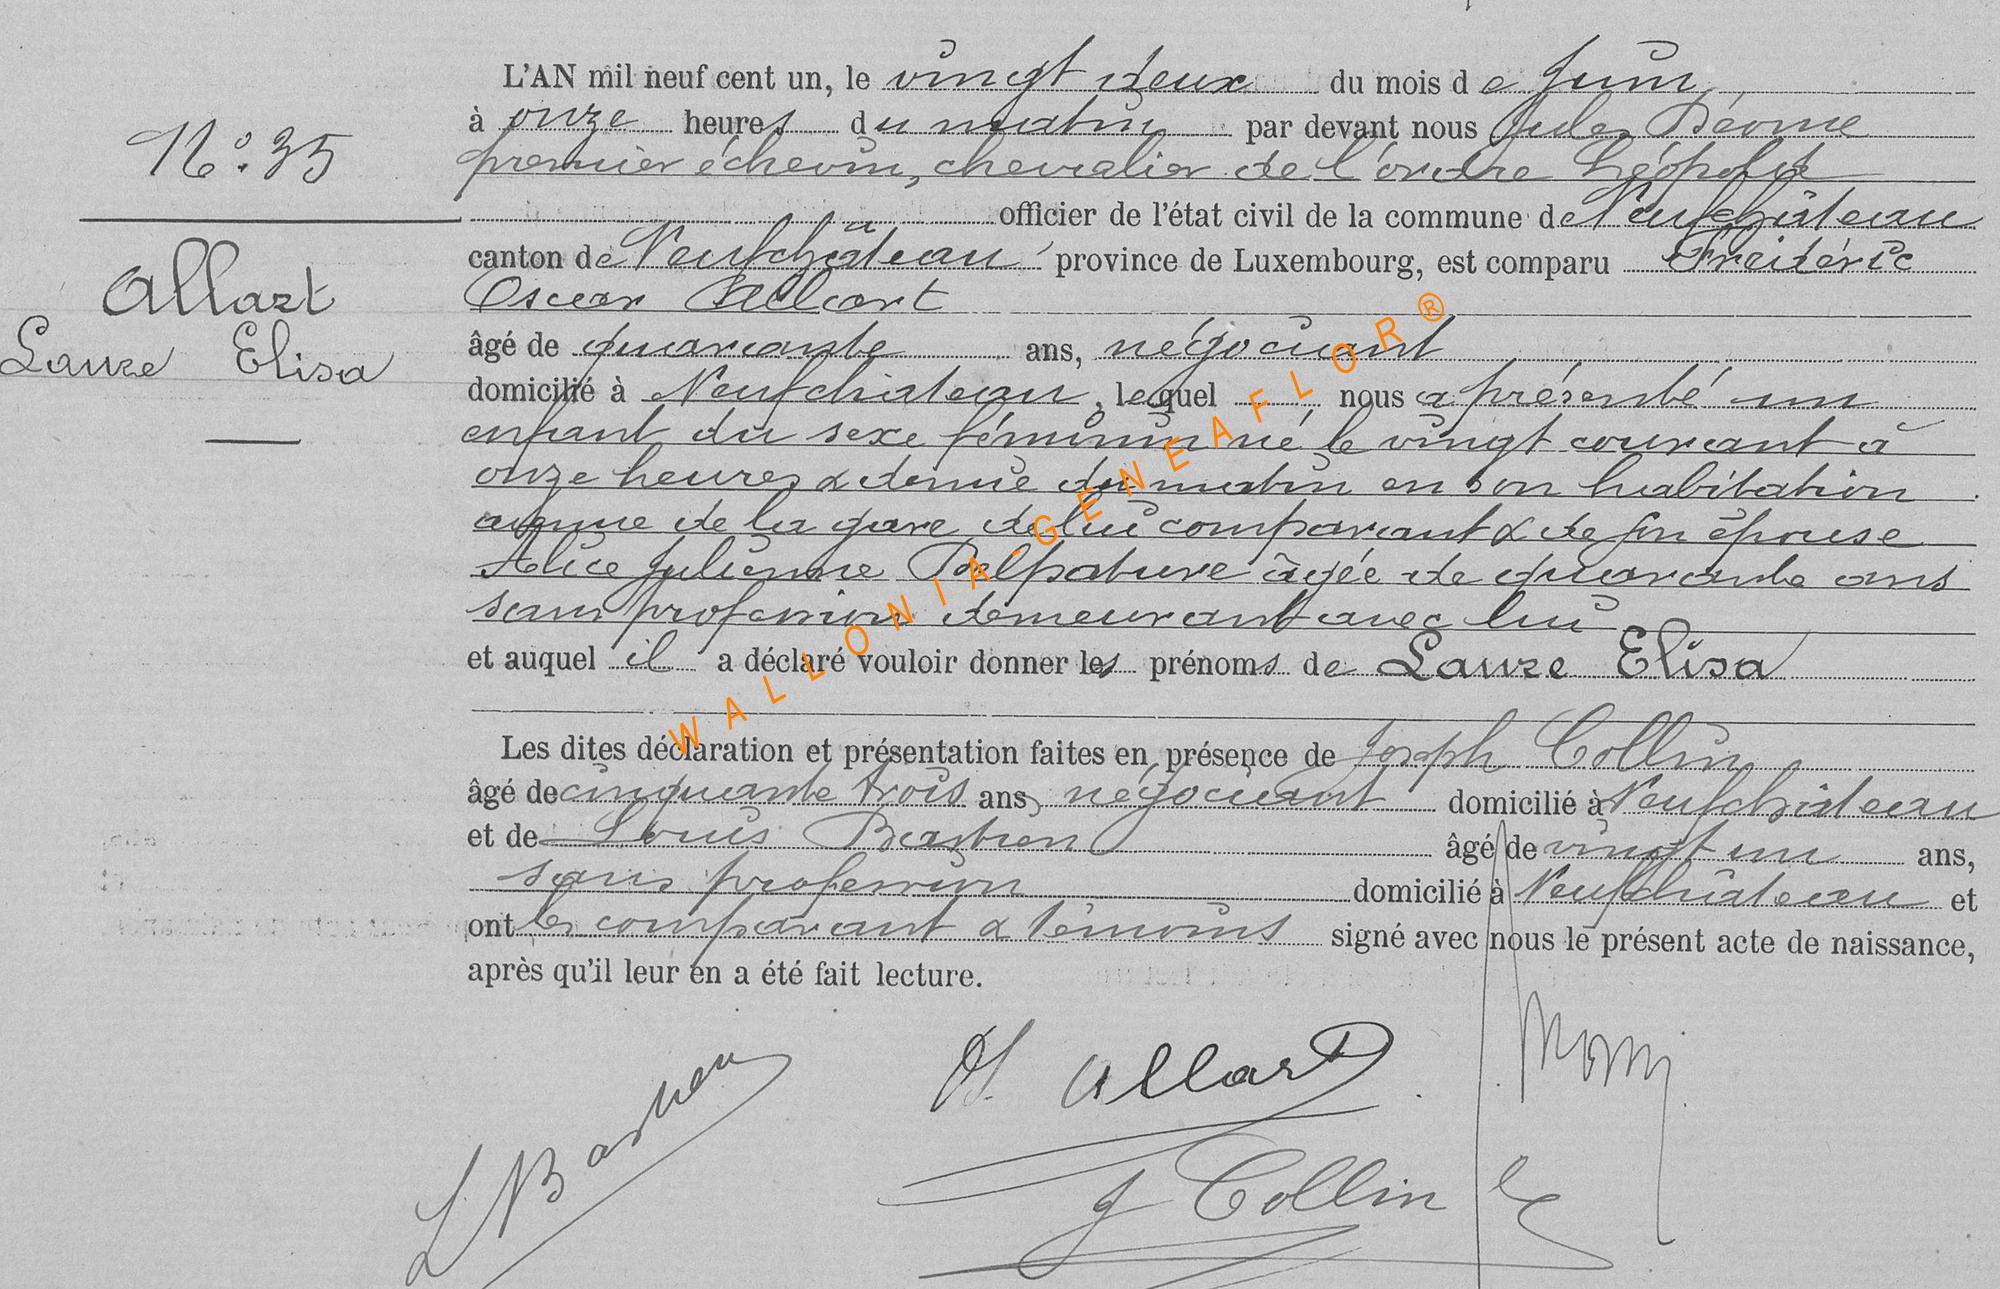 N° 35
Allart
Laure Elisa
L'AN mil neuf cent un, le vingt deux du mois de Juin
à onze heures du matin par devant nous Jules Déome
premier échevin, chevalier de l'ordre Léopold
officier de l'état civil de la commune de Neufchâteau
canton de Neufchâteau province de Luxembourg, est comparu Fréidéric
Oscar Allart
âgé de quarante ans, négociant
domicilié à Neufchâteau, lequel nous a présenté un
enfant du sexe féminin né le vingt courant à
onze heures & demie du matin en son habitation
avenue de la gare de lui comparant & de son épouse
Alice Julienne Delpature âgée de quarante ans
sans profession demeurant avec lui
et auquel il a déclaré vouloir donner les prénoms de Laure Elisa
Les dites déclaration et présentation faites en présence de Joseph Collin
âgé de cinquante trois ans, négociant domicilié à Neufchâteau
et de Louis Bastien âgé de vingt un ans,
sans profession domicilié à Neufchâteau et
ont les comparant & témoins signé avec nous le présent acte de naissance,
après qu'il leur en a été fait lecture.
O. Allart
L Bastien
J Collin
WALLONIA-GENEAFLOR®